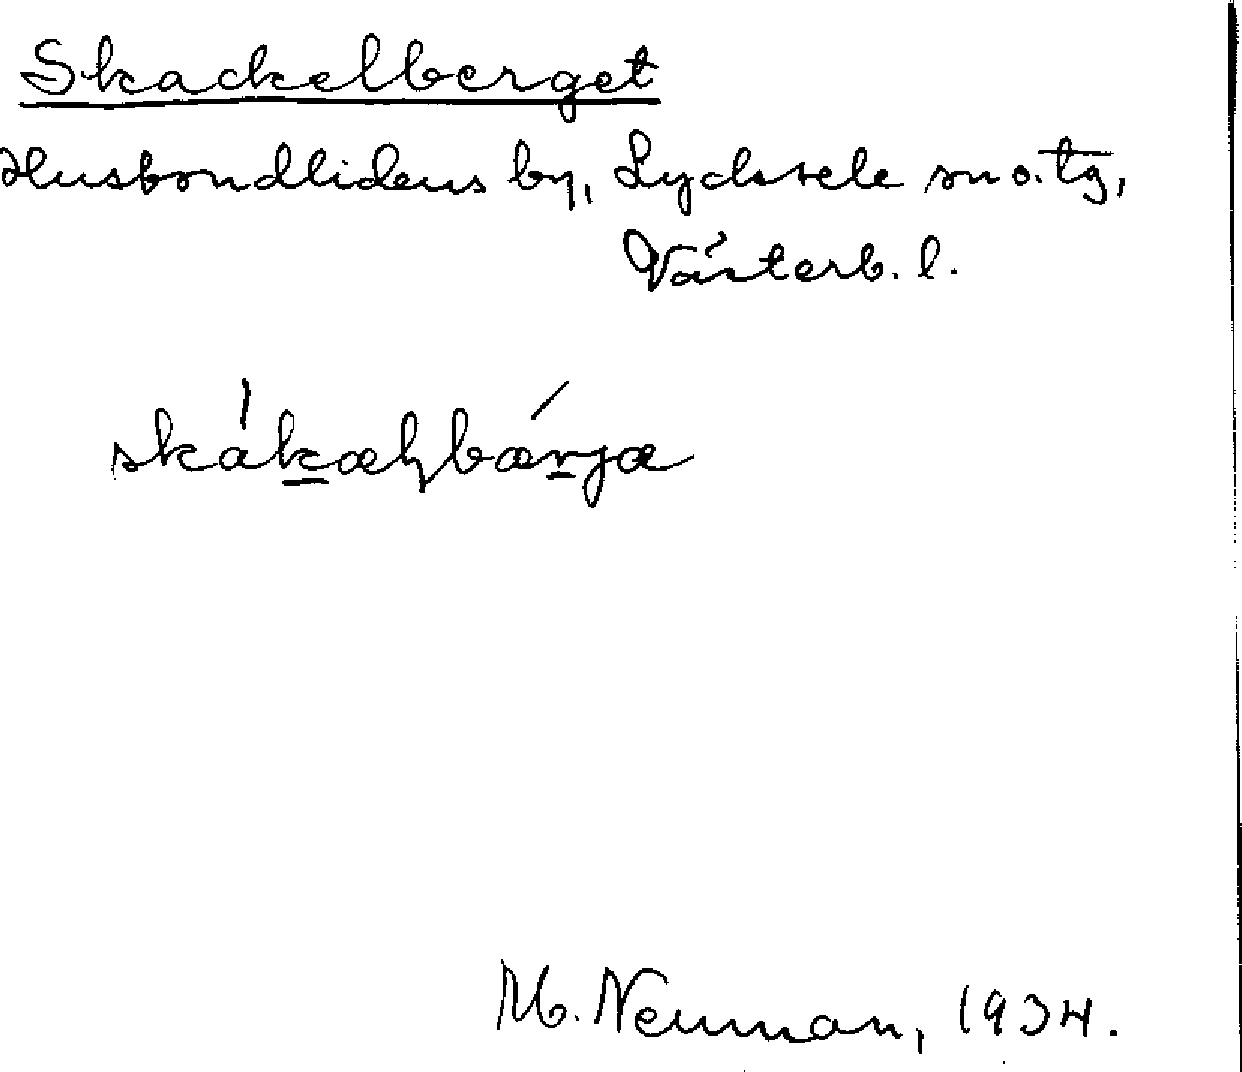 Skackelberget
Husbondlidens by, Lycksele sn o. tg,
Västerb. l.
skákæḷbærjæ
M. Neuman, 1934.